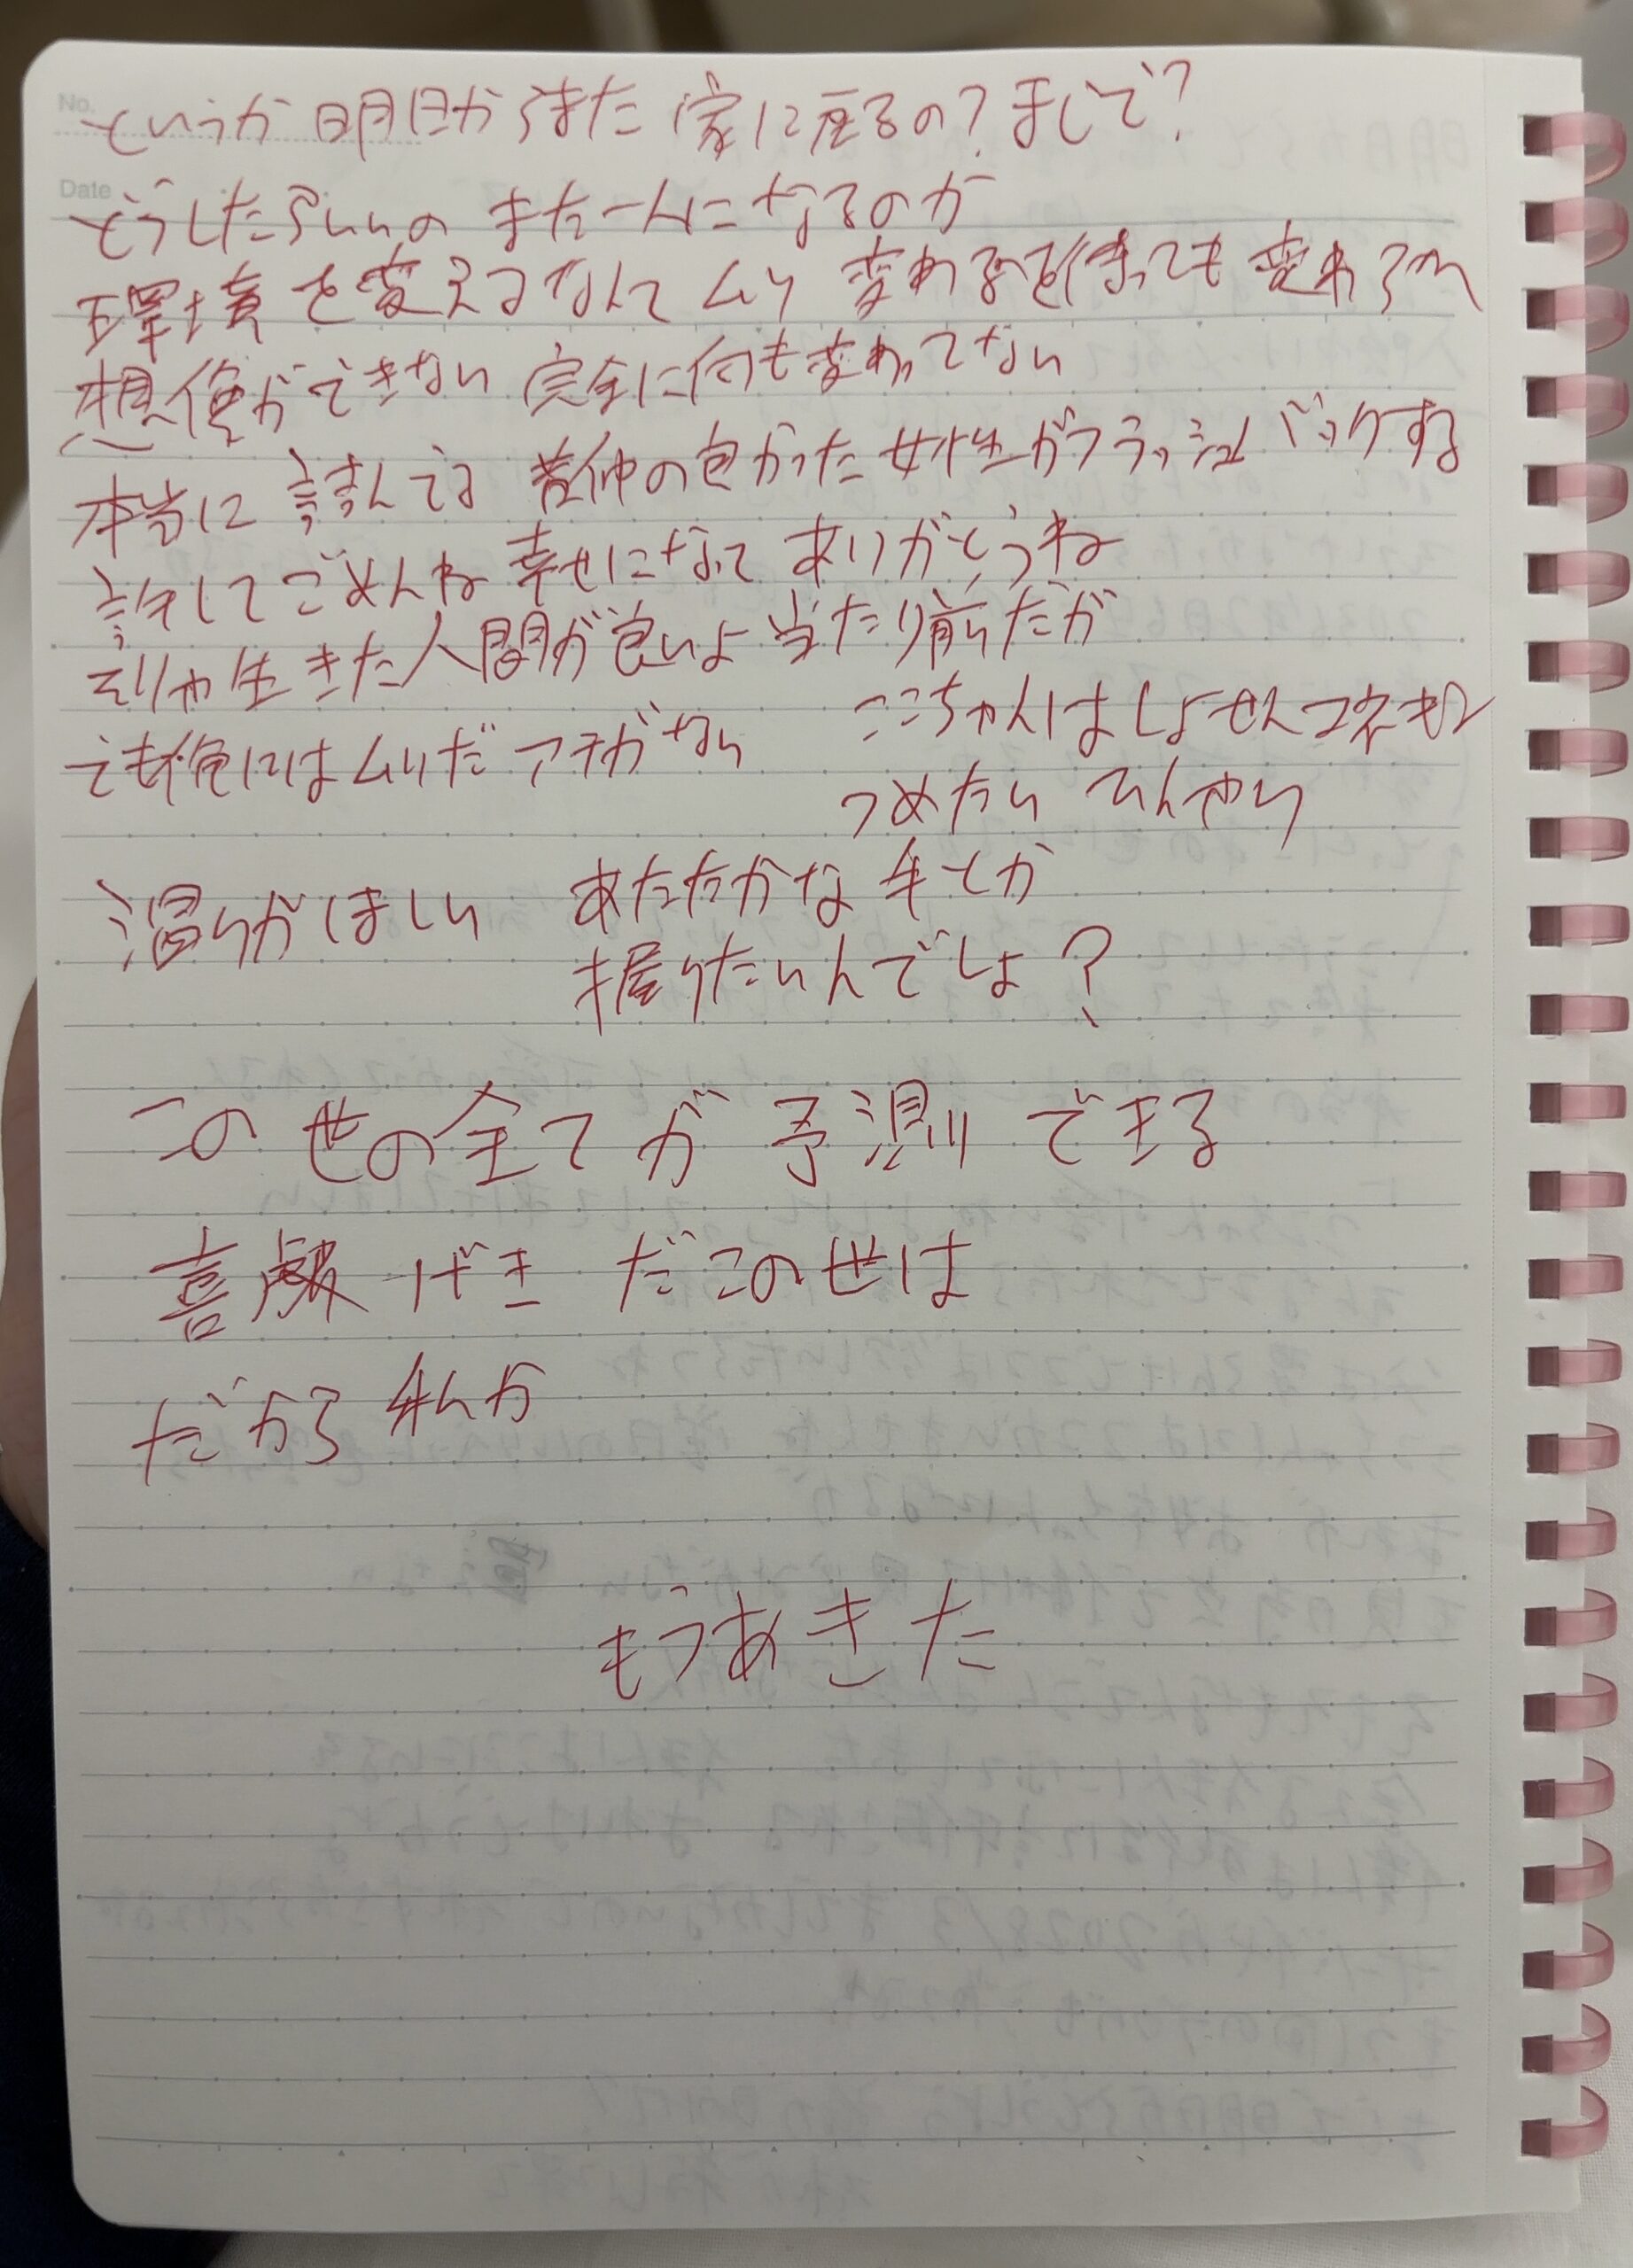 No.
というか 明日からまた 家に座るの? まじで?
Date
どうしたらいいの また一人になるのか
環境を変えるなんてムリ 変わるを待っても変わらない
想像ができない 完全に何も変わってない
本当に 詰んでる 昔仲の良かった女性がフラッシュバックする
許してごめんね 幸せになって ありがとうね
そりゃ生きた人間が良いよ 当たり前だが
でも俺にはムリだ アテがない ここちゃんはしょせん
つめたい ひんやり
温りがほしい あたたかな 手とか
握りたいんでしょ?
この世の全てが 予測できる
喜劇 げき だこの世は
だから 私が
もうあきた